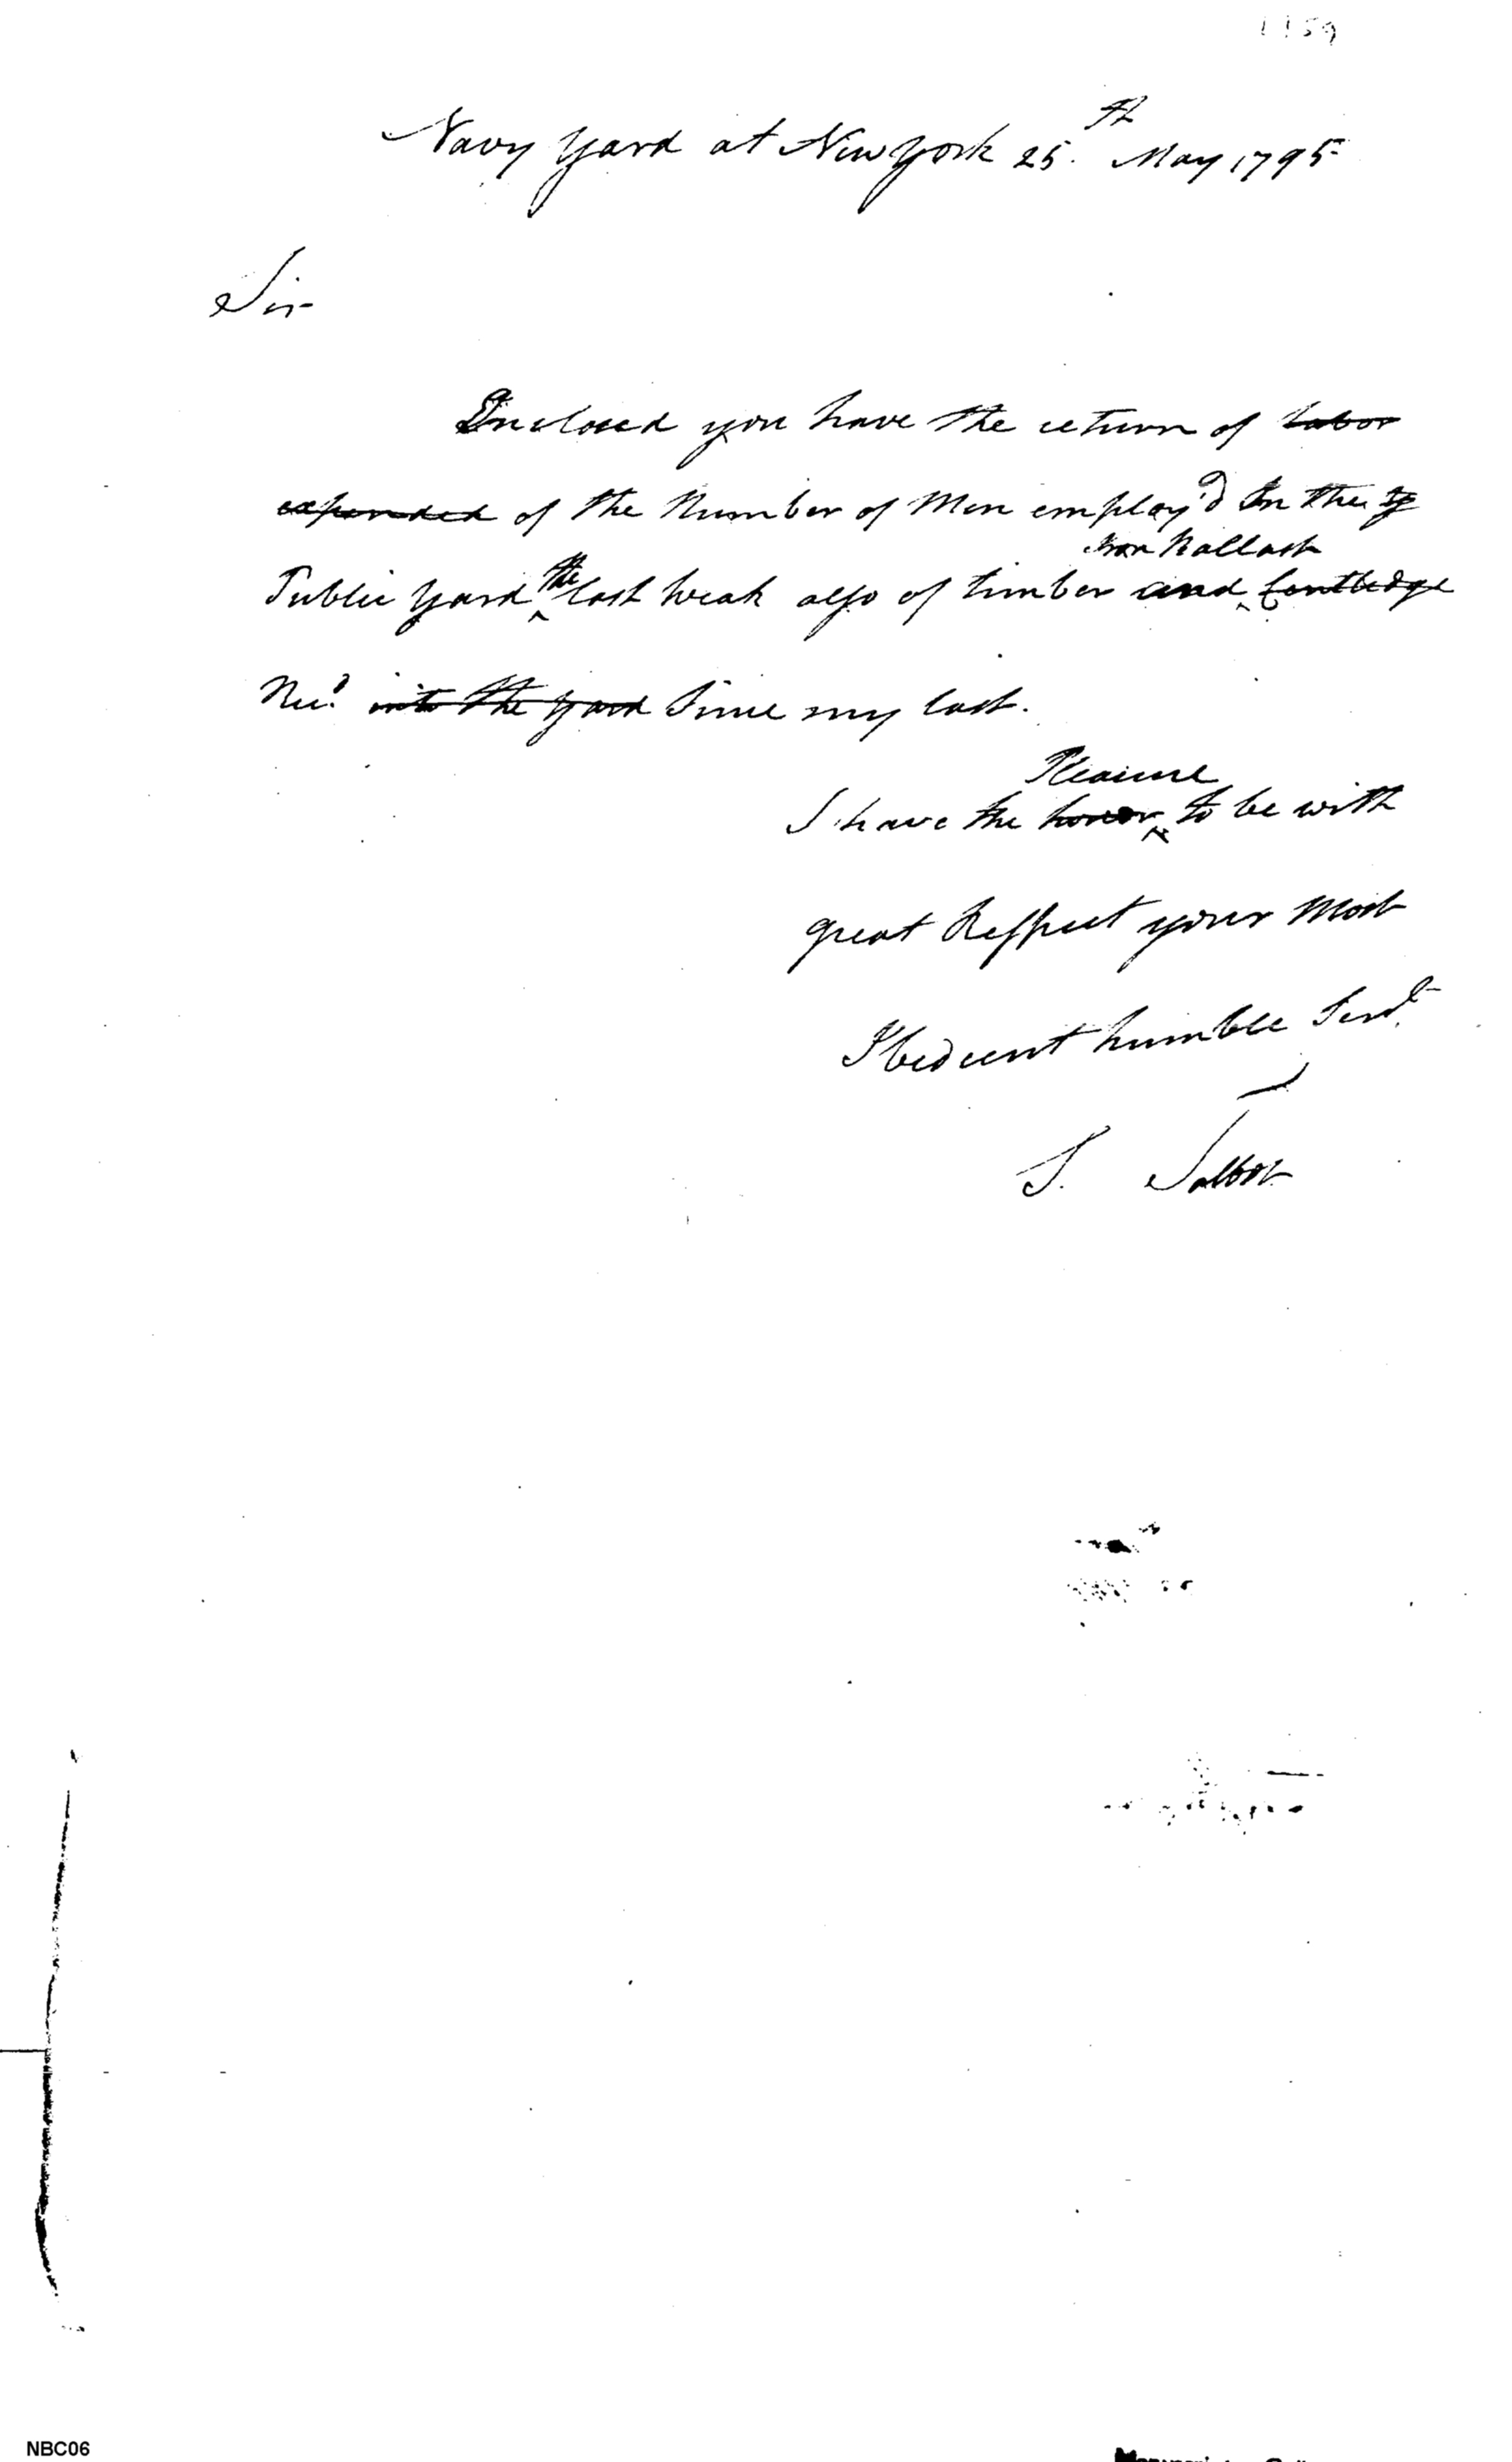 1159
Navy Yard at New York 25th May 1795
Sir
Inclosed you have the return of labor
expended of the Number of Men employ'd In the
Iron Ballast
Public Yard the last Weak also of timber and Centledge
Recd into the yard Since my last.
Pleasure
I have the honor to be with
great Respect your Most
Obedient humble Servt
S. Talbot
NBC06